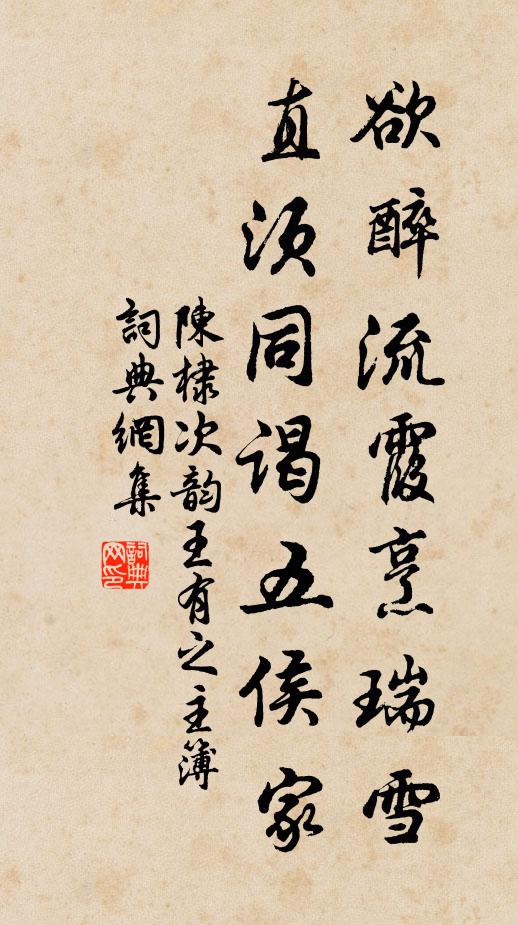 欲醉流霞烹瑞雪
直须同谒五侯家
陳棣次韵王有之主簿
詞典網集
詞典网印